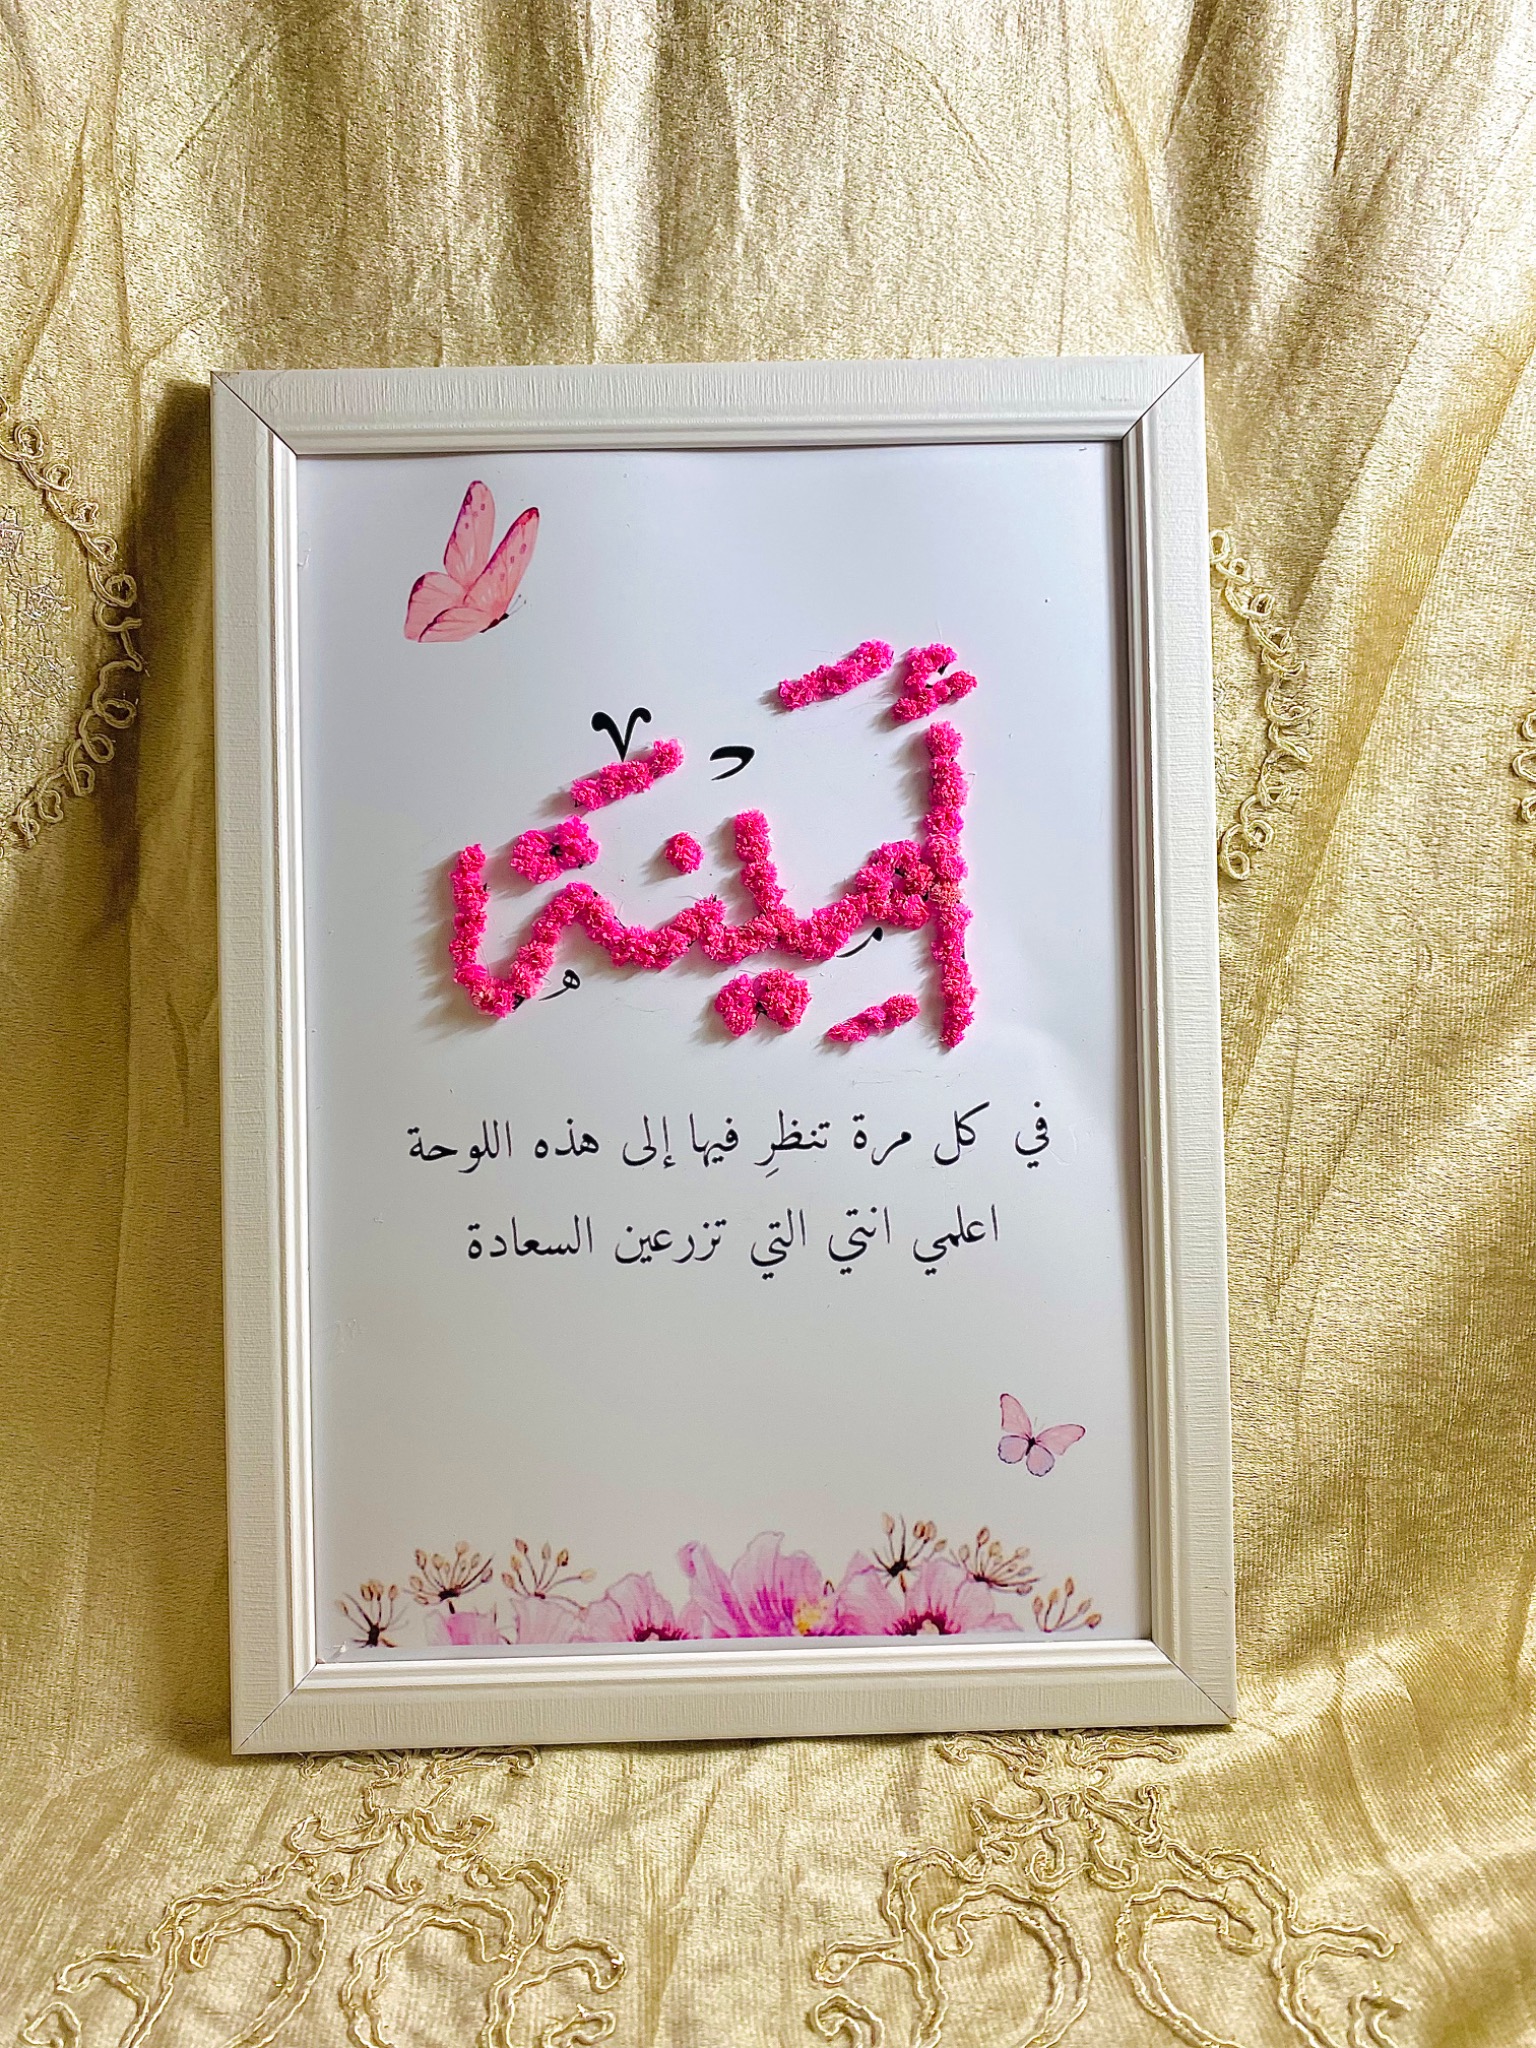 أَمِينَة
في كل مرة تنظرِ فيها إلى هذه اللوحة
اعلمي انتي التي تزرعين السعادة